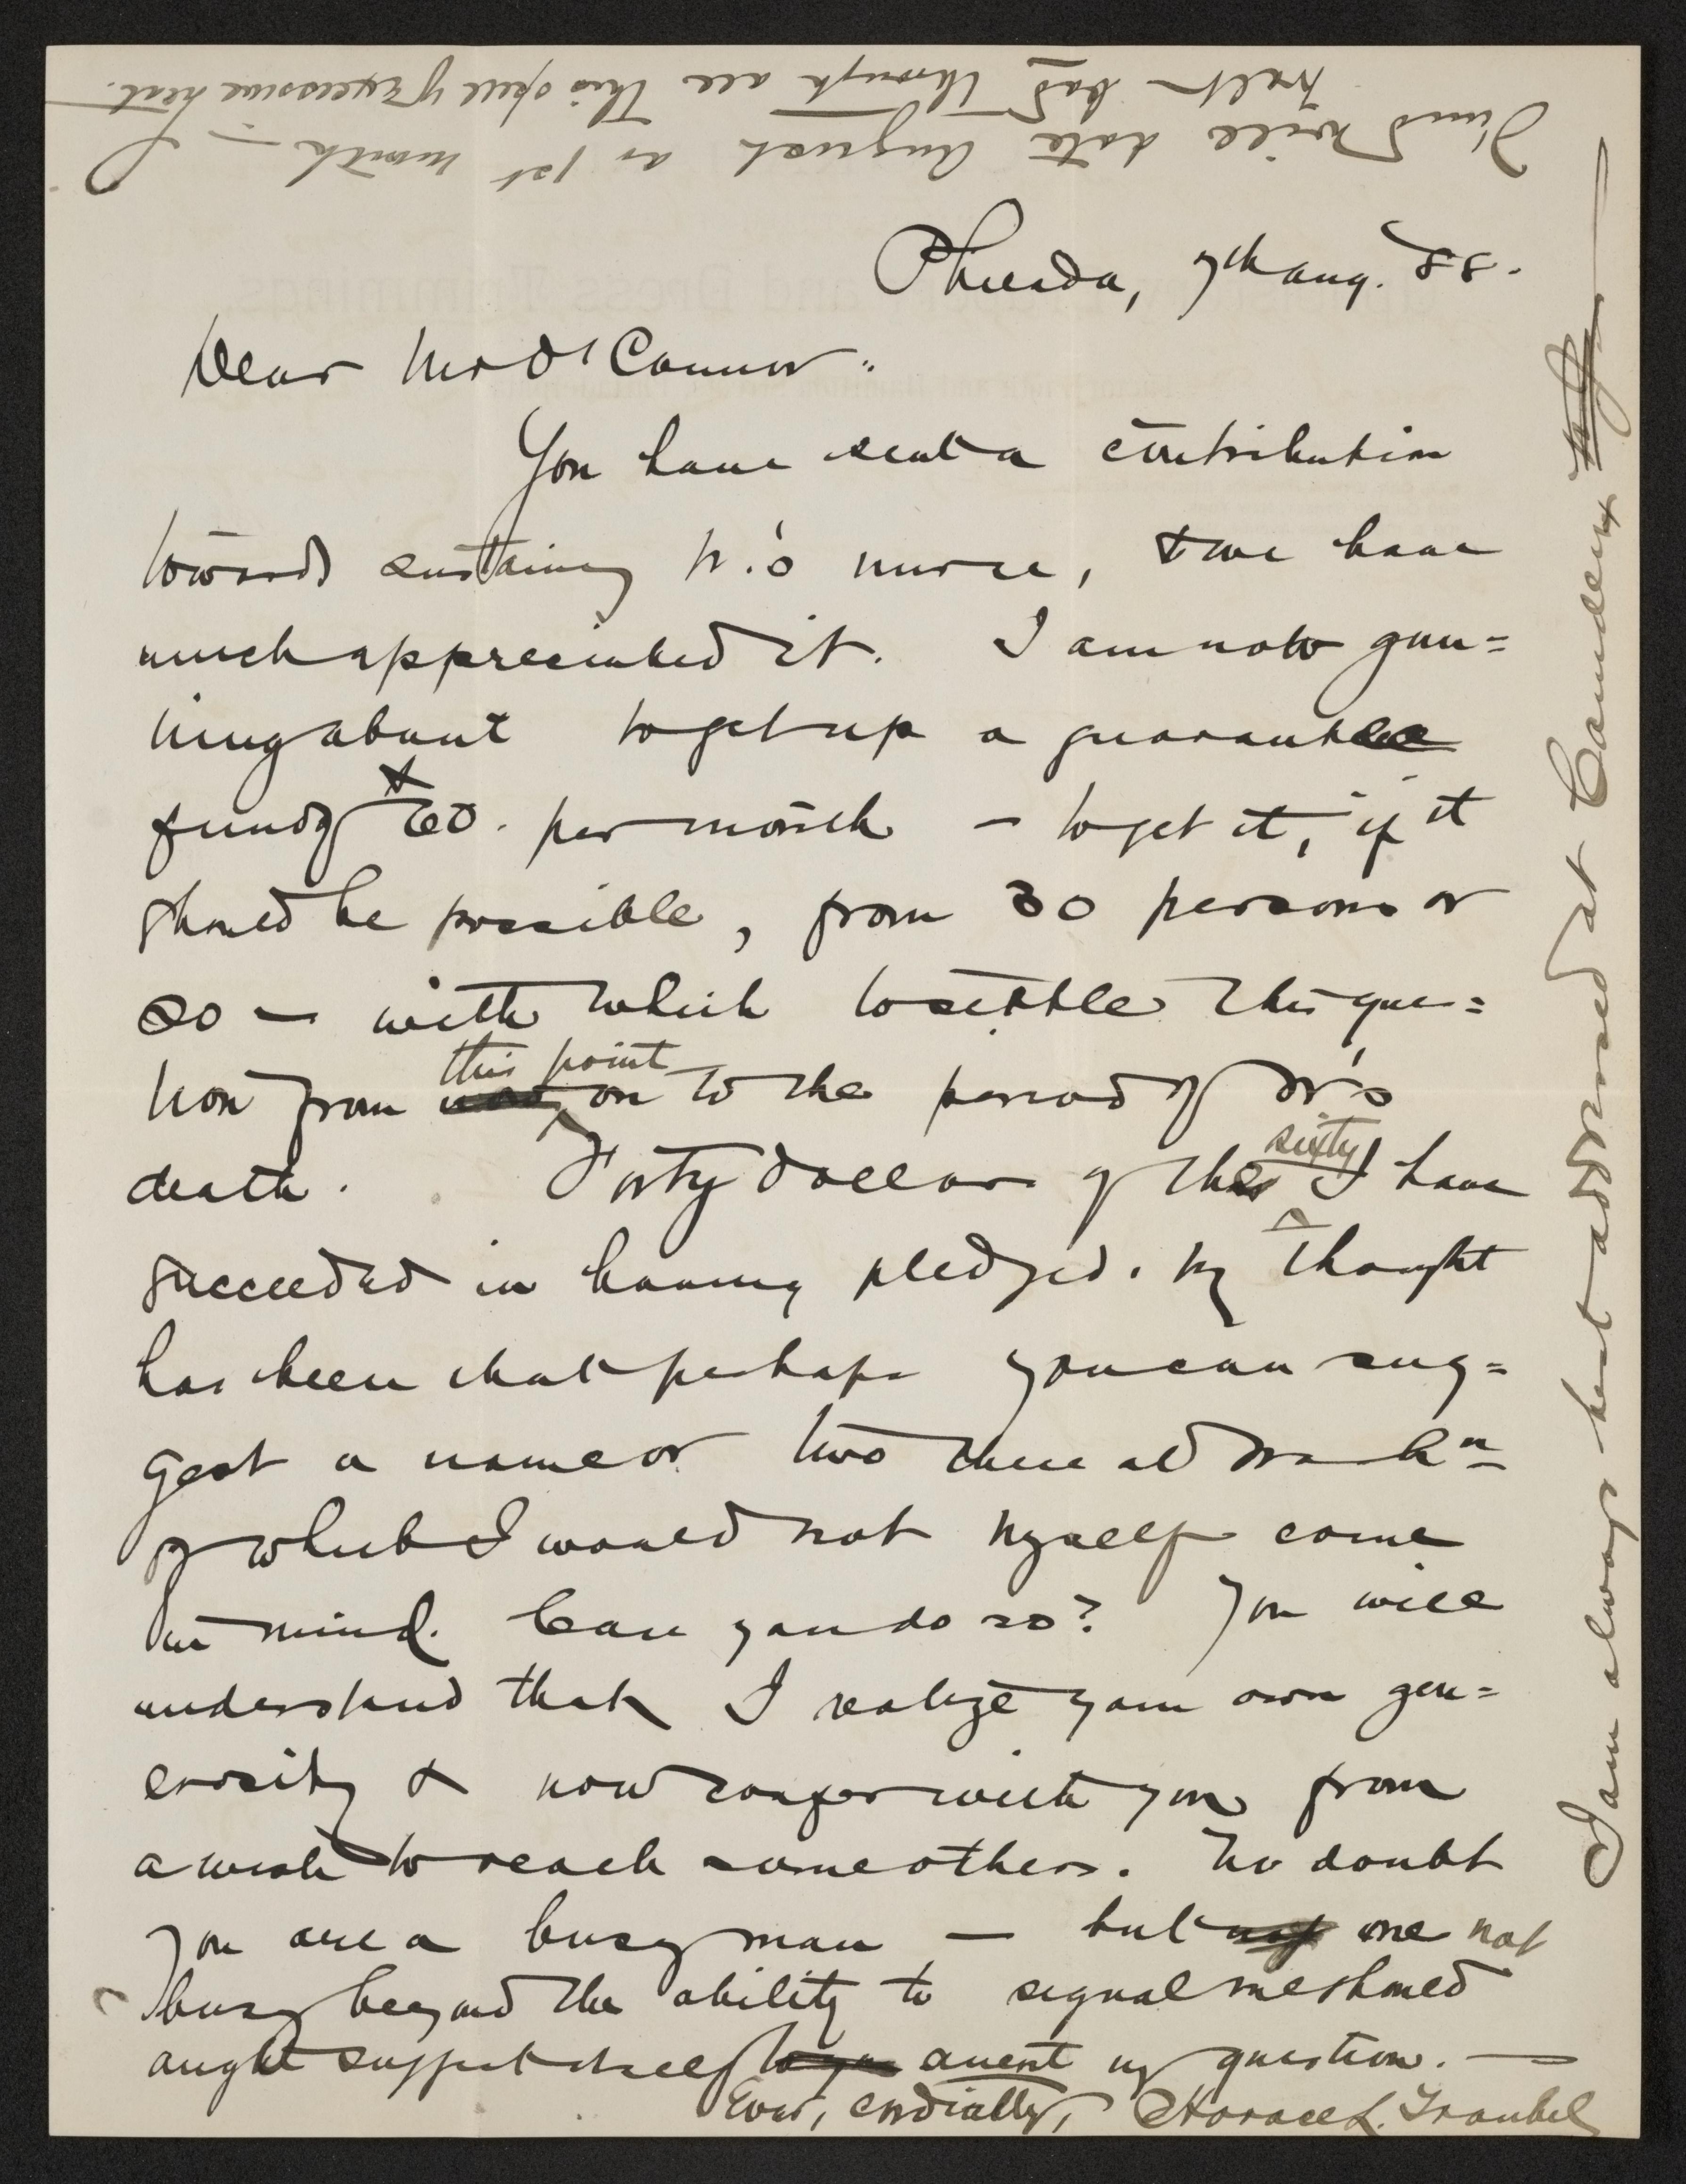 Philada, 7th Aug. 88.
Dear Mr O'Connor:
You have sent a contribution
towards sustaining W.'s nurse, & we have
much appreciated it. I am now gun=
ning about to get up a guarantee
fund of $60. per month – to get it, if it
should be possible, from 30 persons or
so – with which to settle this ques=
tion from this point on to the period of W's
death. Forty dollars of the sixty I have
succeeded in having pledged. My thought
has been that perhaps you can sug=
gest a name or two there at Washn
of which I would not myself come
in mind. Can you do so? You will
understand that I realize your own gen=
erosity & now confer with you from
a wish to reach some others. No doubt
you are a busy man – but not one not
busy beyond the ability to signal me should
aught suggest itself to you anent my question. –
Ever, cordially, Horace L. Traubel
I am always best addressed at Camden
Fund will date August as 1st month –
Walt bad through all this spell of excessive heat.